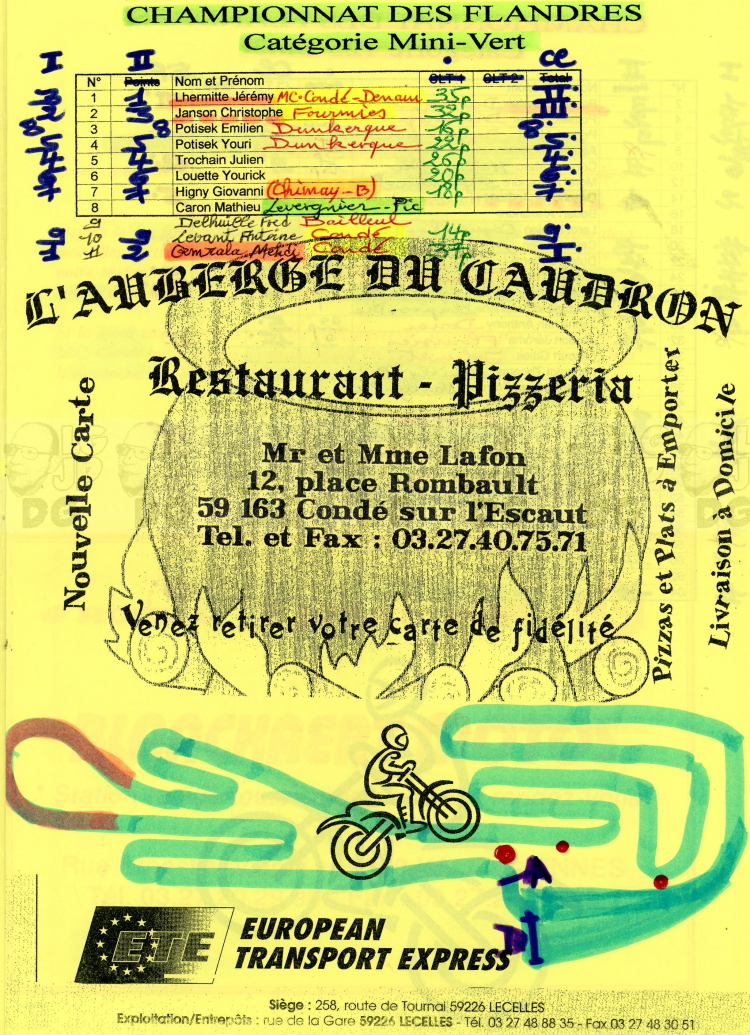 CHAMPIONNAT DES FLANDRES
Catégorie Mini-Vert
N° Points Nom et Prénom CLT 1 CLT 2 Total
1 Lhermitte Jérémy MC-Condé-Denain 35p
2 Janson Christophe Fourmies
3 Potisek Emilien Dunkerque
4 Potisek Youri Dunkerque 22p
5 Trochain Julien 26p
6 Louette Yourick 20p
7 Higny Giovanni (Chimay-B) 18p
8 Caron Mathieu
9 Bailleul
10 Levant Antoine Condé 14p
11 Condé
L'AUBERGE DU CAUDRON
Restaurant - Pizzeria
Nouvelle Carte
Mr et Mme Lafon
12, place Rombault
59 163 Condé sur l'Escaut
Tel. et Fax : 03.27.40.75.71
Pizzas et Plats à Emporter
Livraison à Domicile
Venez retirer votre carte de fidélité
A
D
ETE
EUROPEAN
TRANSPORT EXPRESS
Siège : 258, route de Tournai 59226 LECELLES
Exploitation/Entrepôts : rue de la Gare 59226 LECELLES - Tél. 03 27 48 88 35 - Fax 03 27 48 30 51